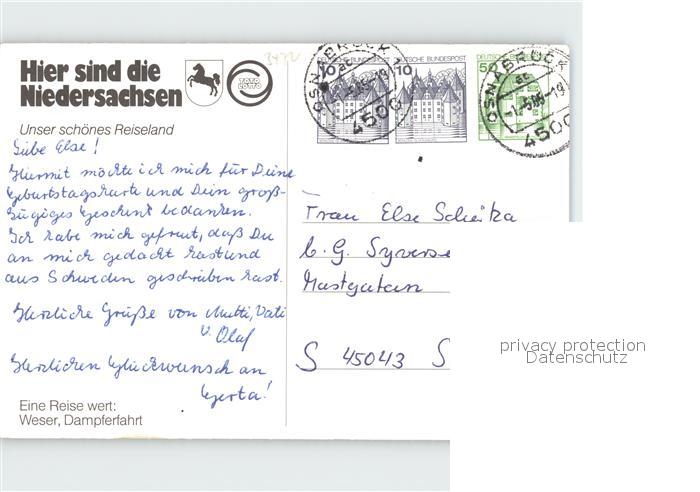 Hier sind die
Niedersachsen
TOTO
LOTTO
Unser schönes Reiseland
Liebe Else!
Hiermit möchte ich mich für Deine
Geburtstagskarte und Dein groß-
zügiges Geschenk bedanken.
Ich habe mich gefreut, daß Du
an mich gedacht hast und
aus Schweden geschrieben hast.
Herzliche Grüße von Mutti, Vati
u. Olaf
Herzlichen Glückwunsch an
Gerta!
Eine Reise wert:
Weser, Dampferfahrt
3472
10 DEUTSCHE BUNDESPOST
10 DEUTSCHE BUNDESPOST
50
OSNABRÜCK
4500
OSNABRÜCK
4500
Frau Else
b. G.
S 45043 S
privacy protection
Datenschutz